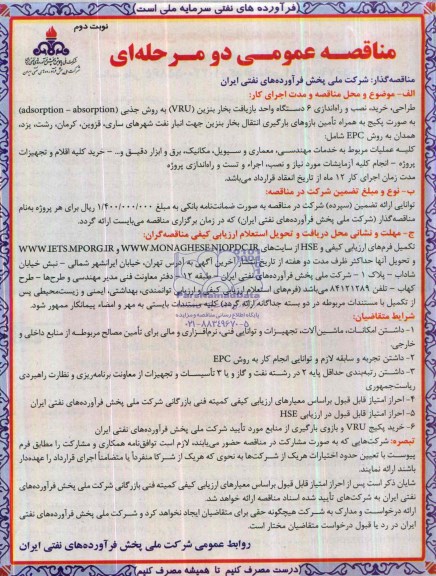 فرآورده های نفتی سرمایه ملی است
نوبت دوم
مناقصه عمومی دو مرحله‌ای
مناقصه‌گذار: شرکت ملی پخش فرآورده‌های نفتی ایران
الف- موضوع و محل مناقصه و مدت اجرای کار:
طراحی، خرید، نصب و راه‌اندازی ۶ دستگاه واحد بازیافت بخار بنزین (VRU) به روش جذبی (adsorption – absorption)
به صورت پکیج به همراه تأمین بازوهای بارگیری انتقال بخار بنزین جهت انبار نفت شهرهای ساری، قزوین، کرمان، رشت، یزد،
همدان به روش EPC شامل:
کلیـه عملیات مربوط به خدمات مهندسـی، معماری و سـیویل، مکانیک، برق و ابزار دقیق و... – خرید کلیه اقلام و تجهیزات
پروژه – انجام کلیه آزمایشات مورد نیاز و نصب، اجراء و تست و راه‌اندازی پروژه
مدت زمان اجرای کار ۱۲ ماه از تاریخ انعقاد قرارداد می‌باشد.
ب- نوع و مبلغ تضمین شرکت در مناقصه:
توانایی ارائه تضمین (سپرده) شرکت در مناقصه به صورت ضمانت‌نامه بانکی به مبلغ ۱/۴۰۰/۰۰۰/۰۰۰ ریال برای هر پروژه به‌نام
مناقصه‌گذار (شرکت ملی پخش فرآورده‌های نفتی ایران) که در زمان برگزاری مناقصه می‌بایست ارائه گردد.
ج- مهلت و نشانی محل دریافت و تحویل استعلام ارزیابی کیفی مناقصه‌گران:
تکمیل فرم‌های ارزیابی کیفی و HSE از سایت‌های WWW.MONAGHESENIOPDC.IR و WWW.IETS.MPORG.IR
و تحویل آنها حداکثر ظرف مدت دو هفته از تاریخ آخرین آگهی به آدرس تهران، خیابان ایرانشهر شمالی – نبش خیابان
شاداب – پلاک ۱ – شرکت ملی پخش فرآورده‌های نفتی ایران – طبقه ۱۲ – دفتر معاونت فنی مدیر مهندسی و طرح‌ها – طرح
کهاب – تلفن ۸۴۱۲۱۲۸۹ می‌باشد (فرم‌های استعلام ارزیابی کیفی و ارزیابی توانمندی، بهداشتی، ایمنی و زیست‌محیطی پس
از تکمیل با مستندات مربوطه در دو بسته جداگانه ارائه گردد) کلیه مستندات بایستی به مهر و امضاء پیمانکار ممهور شود.
پایگاه اطلاع رسانی مناقصه و مزایده
۰۲۱-۸۸۳۴۹۶۷۰-۵
شرایط متقاضیان:
۱- داشتن امکانـات، ماشین‌آلات، تجهیـزات و توانایی فنی، نرم‌افزاری و مالی برای تأمین مصالح مربوطـه از منابع داخلی و
خارجی.
۲- داشتن تجربه و سابقه لازم و توانایی انجام کار به روش EPC
۳- داشتن رتبه‌بندی حداقل پایه ۲ در رشـته نفت و گاز و یا ۳ تأسیسـات و تجهیزات از معاونت برنامه‌ریزی و نظارت راهبردی
ریاست‌جمهوری
۴- احراز امتیاز قابل قبول براساس معیارهای ارزیابی کیفی کمیته فنی بازرگانی شرکت ملی پخش فرآورده‌های نفتی ایران
۵- احراز امتیاز قابل قبول در ارزیابی HSE
۶- خرید پکیج VRU و بازوی بارگیری از منابع مورد تأیید شرکت ملی پخش فرآورده‌های نفتی ایران
تبصره: شرکت‌هایی که به صورت مشارکت در مناقصه حضور می‌یابند، لازم است توافق‌نامه همکاری و مشارکت را مطابق فرم
پیوسـت با تعیین حدود اختیارات هریک از شـرکت‌ها به نحوی که هریک از شـرکا منفرداً یا متضامناً اجرای قرارداد را عهده‌دار
باشند ارائه نمایند.
شایان ذکر است پس از احراز امتیاز قابل قبول براساس معیارهای ارزیابی کیفی کمیته فنی بازرگانی شرکت ملی پخش فرآورده‌های
نفتی ایران به شرکت‌های تأیید شده اسناد مناقصه ارائه خواهد شد.
ارائه درخواسـت و مدارک به شـرکت هیچگونه حقی برای متقاضیان ایجاد نخواهد کرد و شـرکت ملی پخش فرآورده‌های نفتی
ایران در رد یا قبول درخواست متقاضیان مختار است.
روابط عمومی شرکت ملی پخش فرآورده‌های نفتی ایران
درست مصرف کنیم تا همیشه مصرف کنیم